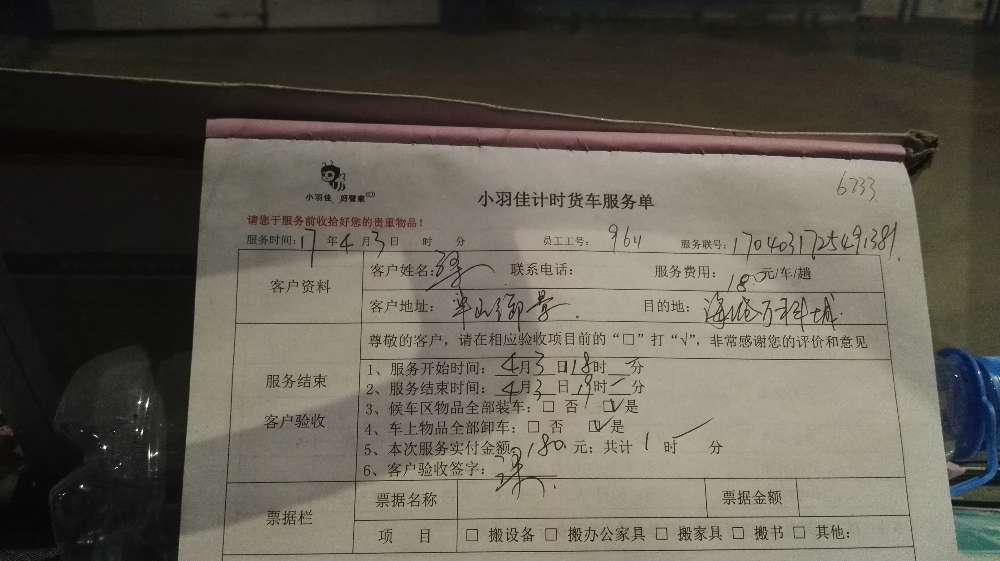 6733
小羽佳 好管家
小羽佳计时货车服务单
请您于服务前收拾好您的贵重物品！
服务时间：17年4月3日 时 分 员工工号： 964 服务联号：1704031725491381
客户资料
客户姓名： 联系电话： 服务费用：180元/车/趟
客户地址：半山御景 目的地：海沧万科城
服务结束
客户验收
尊敬的客户，请在相应验收项目前的“□”打“√”，非常感谢您的评价和意见
1、服务开始时间：4月3日18时 分
2、服务结束时间：4月3日19时 分
3、候车区物品全部装车：□ 否 ☑是
4、车上物品全部卸车：□ 否 ☑是
5、本次服务实付金额：180元；共计1时 分
6、客户验收签字：
票据栏
票据名称 票据金额
项 目 □ 搬设备 □ 搬办公家具 □ 搬家具 □ 搬书 □ 其他：